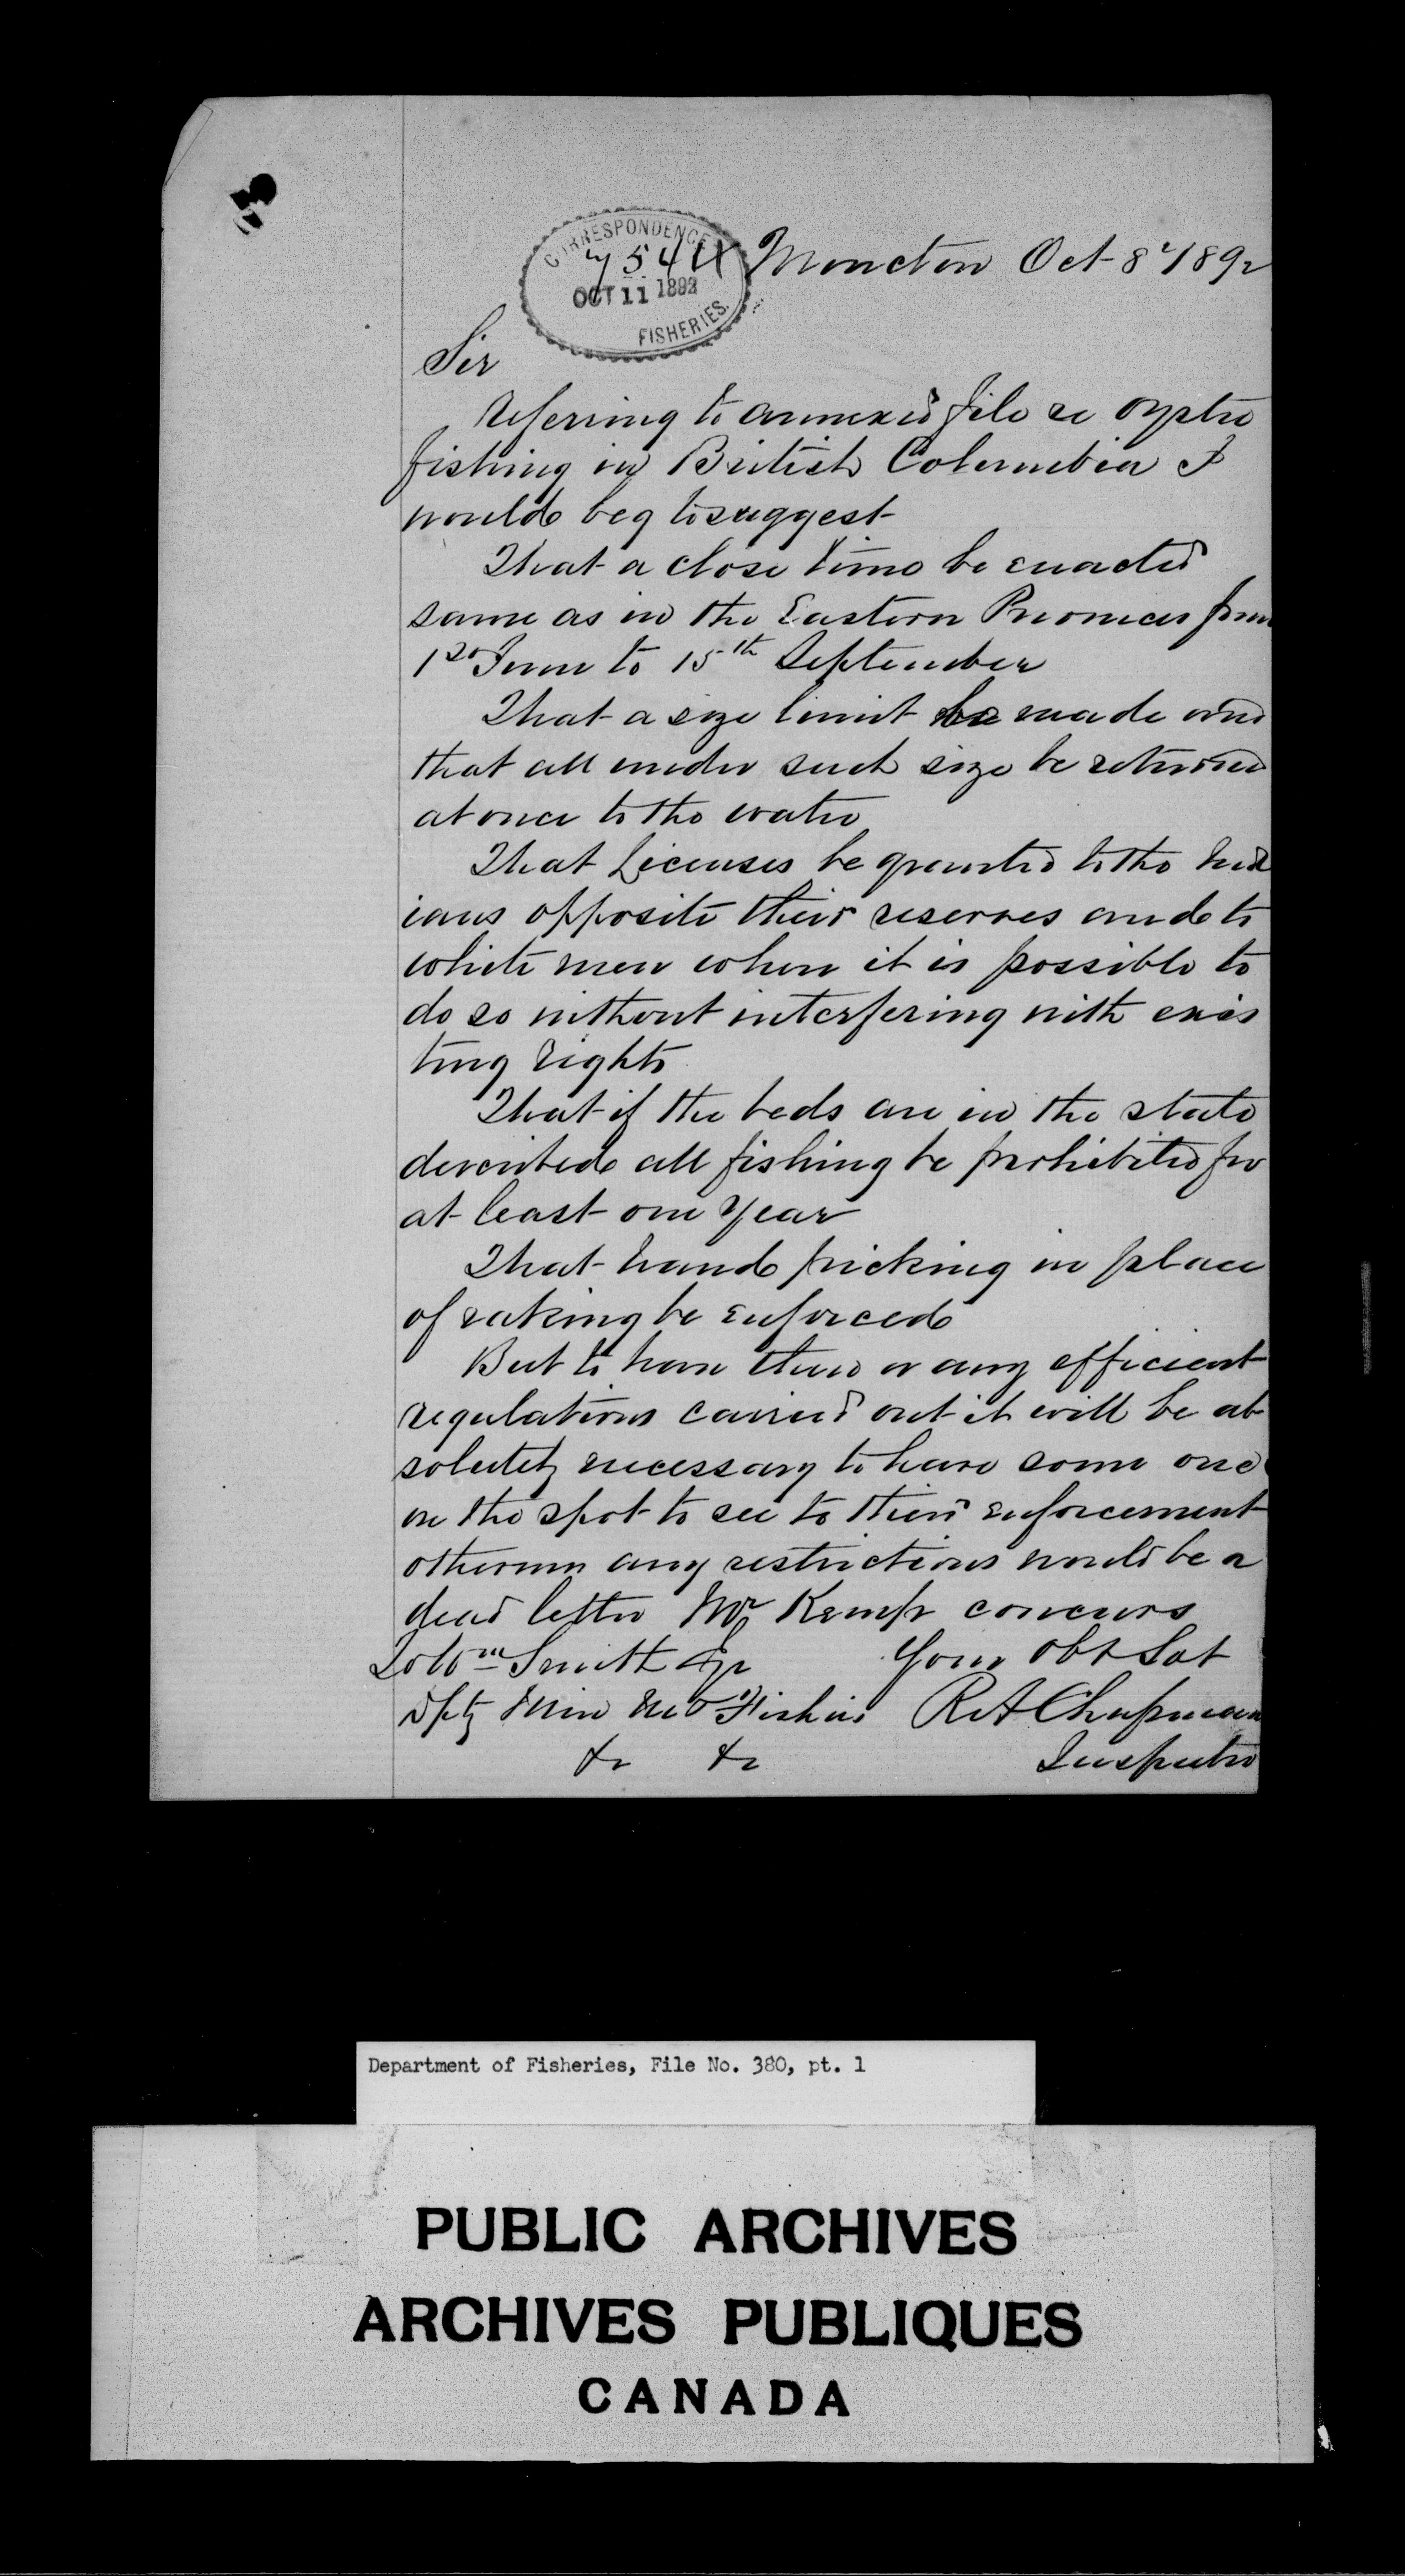 CORRESPONDENCE
7544
OCT 11 1892
FISHERIES.
Moncton Oct 8th 1892
Sir
Referring to annexed file re oyster
fishing in British Columbia I
would beg to suggest
That a close time be enacted
same as in the Eastern Provinces from
1st June to 15th September
That a size limit be made and
that all under such size be returned
at once to the water
That Licenses be granted to the Ind
ians opposite their reserves and to
white men when it is possible to
do so without interfering with exis
ting rights
That if the beds are in the state
described all fishing be prohibited for
at least one year
That hand picking in place
of raking be enforced
But to have these or any efficient
regulations carried out it will be ab
solutely necessary to have some one
on the spot to see to their enforcement
otherwise any restrictions would be a
dead letter Mr Kemp concurs
To Wm Smith Esqr Your Obt Svt
Dpty Min Fisheries R A Chapman
&c &c Inspector
Department of Fisheries, File No. 380, pt. 1
PUBLIC ARCHIVES
ARCHIVES PUBLIQUES
CANADA